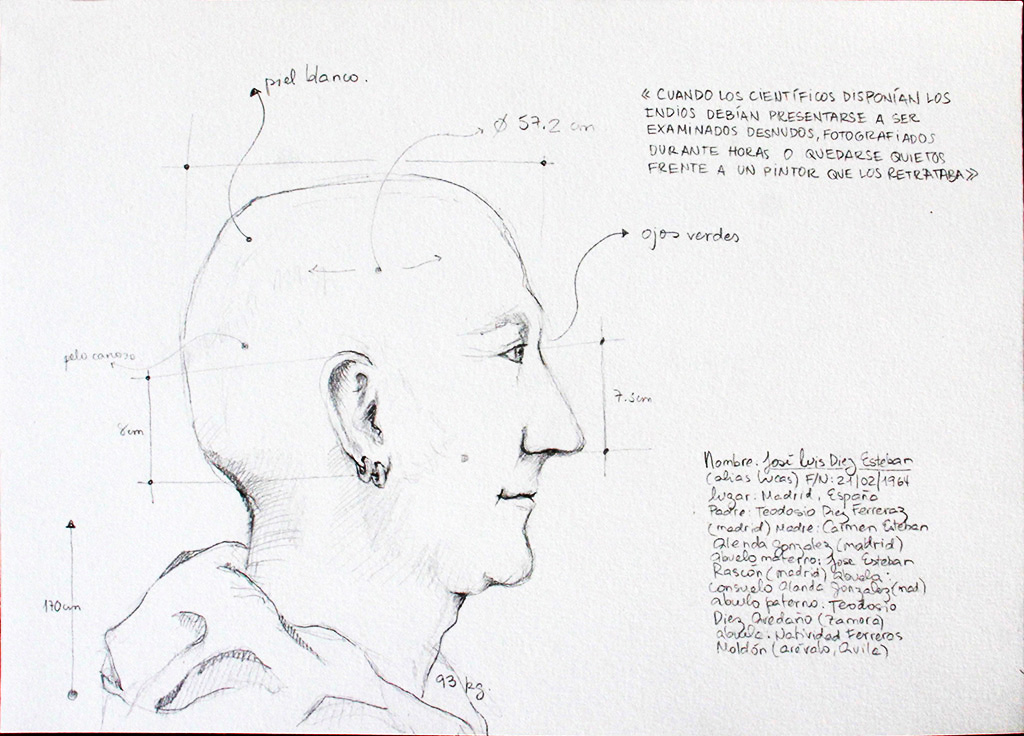 piel blanco.
Ø 57.2 cm
« CUANDO LOS CIENTÍFICOS DISPONÍAN LOS
INDIOS DEBÍAN PRESENTARSE A SER
EXAMINADOS DESNUDOS, FOTOGRAFIADOS
DURANTE HORAS O QUEDARSE QUIETOS
FRENTE A UN PINTOR QUE LOS RETRATABA»
ojos verdes
pelo canoso
8cm
7.3cm
Nombre: José Luis Diez Esteban
(alias Lucas) F/N: 21/02/1964
lugar: Madrid, España
Padre: Teodosio Diez Ferreraz
(madrid) Madre: Carmen Esteban
Olenda Gonzalez (madrid)
abuelo materno: Jose Esteban
Rascón (madrid) abuela:
Consuelo Olanda Gonzalez (mad)
abuelo paterno: Teodosio
Diez Avedaño (Zamora)
abuela: Natividad Ferreros
Moldón (arévalo, Ávila)
170cm
93 kg.